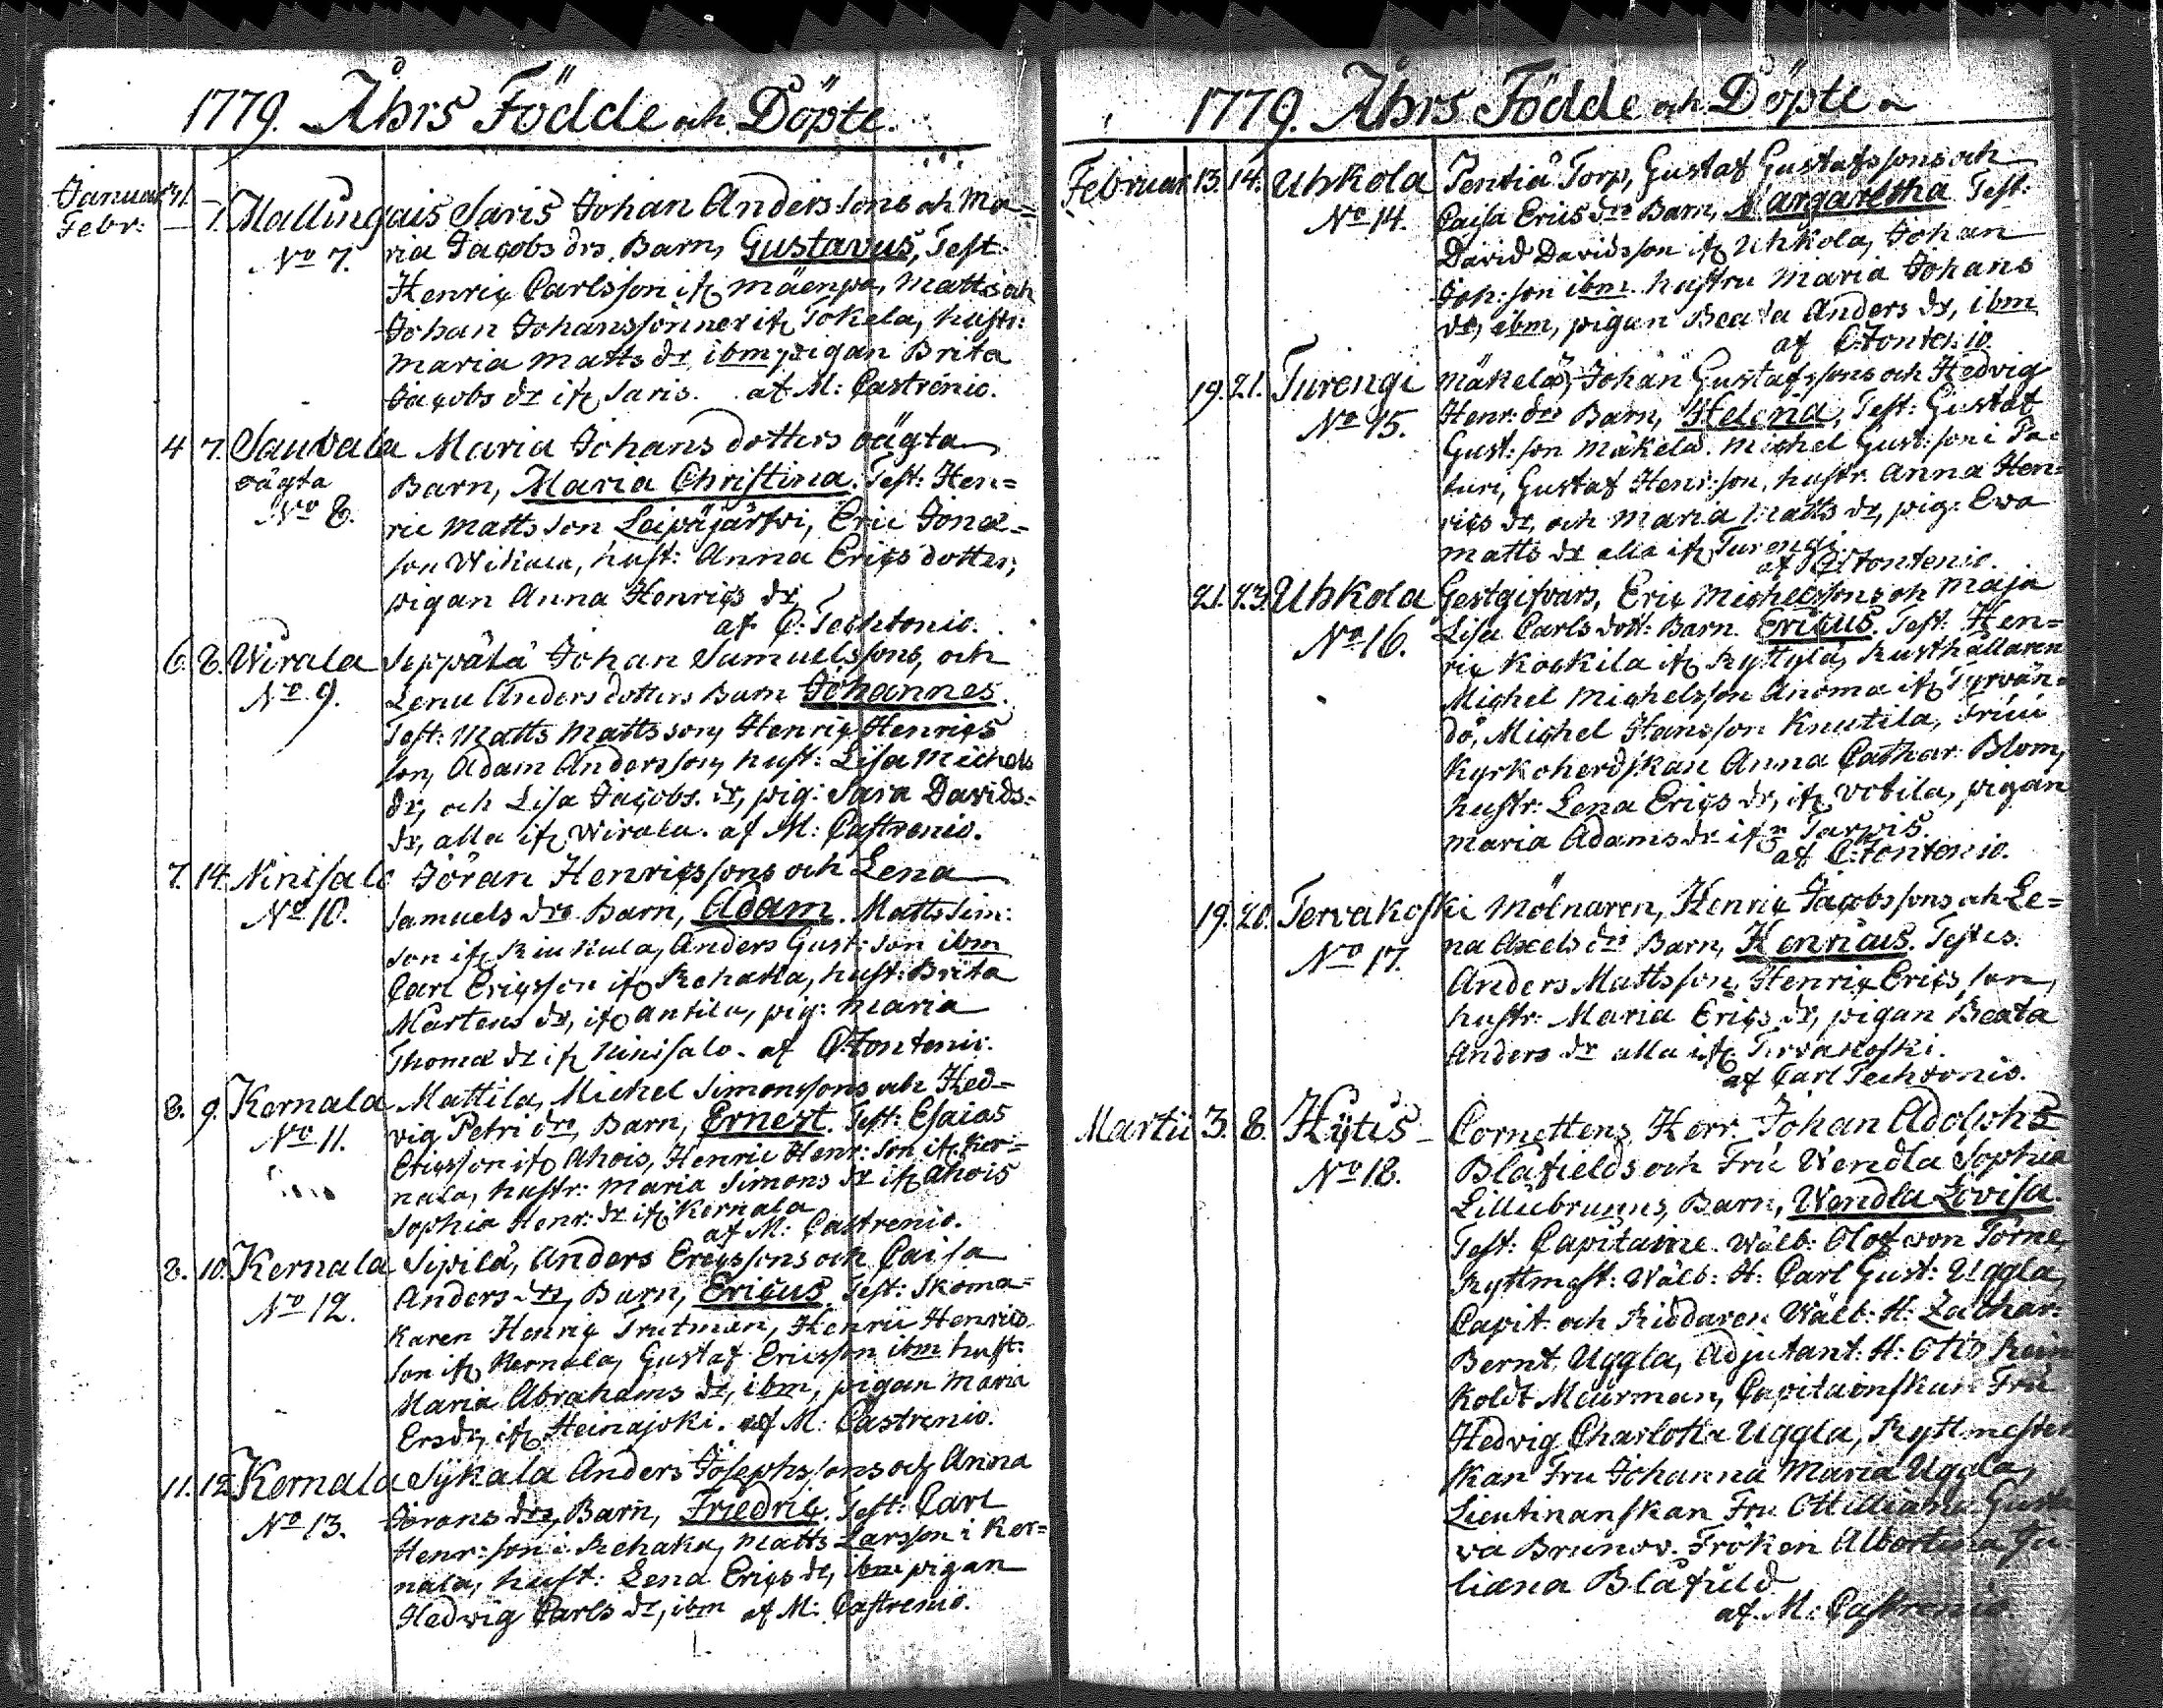 1779. Åhrs Födde och Döpte.
Januar 31. — Mallingais Saris Johan Anderssons och Ma=
Febr: — 7. ria Jacobs drs. Barn, Gustavus, Test:
No 7. Henric Carlsson ifr. mäenpä, Matts och
Johan Johanssönner ifr Tokela, hustr:
Maria Matts dr ibm pigan Brita
Jacobs dr ifr Saris. af M: Castrénio.
4 7. Sauvala Maria Johans dotters oägta
oägta Barn, Maria Christina. Test: Hen=
No 8. ric Matts son Leipäjärfvi, Eric
son, hust: Anna Erics dotter,
pigan Anna Henrics dr,
af C: Techtonio.
6. 8. Wirala Seppälä Johan Samuelssons, och
No 9. Lena Anders dotters Barn Johannes.
Test: Matts Mattsson, Henric Henrics
son, Adam Andersson, hust: Lisa Michels
dr, och Lisa Jacobs. dr, pig: Sara Davids=
dr, alla ifr Wirala. af M: Castrenio.
7. 14. Ninisalo Jöran Henricssons och Lena
No 10. Samuels drs Barn, Adam. Matts Sim:
son ifr, Anders Gust: son ibm
Carl Ericsson ifr Rehaka, hust: Brita
Mårtens dr, ifr Antila, pig: Maria
Thomæ dr ifr Ninisalo. af C: Tontenio.
8. 9. Kernala Mattila, Michel Simonssons och Hed=
No 11. vig Petri drs, Barn, Ernest. Test: Esaias
Ericsson ifr Ahois, Henric Henr: son ifr Ker=
nala, hustr: Maria Simons dr ifr Ahois
Sophia Henr: dr ifr Kernala
af M: Castrenio.
8. 10. Kernala Sipilä, Anders Ericssons och Caisa
No 12. Anders drs, Barn, Ericus. Test: Skoma=
karen Henric Trutman, Henric Henrics
son ifr Kernala, Gustaf Ericsson ibm hust:
Maria Abrahams dr, ibm, pigan Maria
Ersdr, ifr Heinajoki. af M: Castrenio.
11. 12. Kernala Sykala Anders Josephssons och Anna
No 13. Jörans drs, Barn, Friedric. Test: Carl
Henr: son i Rehaka, Matts Larsson i Ker=
nala, hust: Lena Erics dr, ibm pigan
Hedvig Carls dr, ibm af M: Castrenio.
1779. Åhrs Födde och Döpte
Februar 13. 14. Uhkola Pentiä Torp, Gustaf Gustafssons och
No 14. Caisa Erics drs Barn, Margaretha Test:
David Davidsson ifr Uhkola, Johan
Joh: son ibm. hustru Maria Johans
dr, ibm, pigan Beata Anders dr, ibm
af C: Tontenio.
19. 21. Turengi Mäkelä, Johan Gustafssons och Hedvig
No 15. Henr: drs Barn, Helena, Test: Gustaf
Gust: son Mäkelä. Michel Gust: son i Pa=
turi, Gustaf Henr: son, hustr. Anna Hen=
rics dr, och Maria Matts dr, pig: Eva
Matts dr alla ifr Turengi.
af C: Tontenio.
21. 23. Uhkola Gestgifvars, Eric Michelssons och Maja
No 16. Lisa Carls dott: Barn. Ericus. Test: Hen=
ric Kockila ifr Ryttylä, Rusthållaren
Michel Michelsson Anoma ifr Tyrvän=
dö, Michel Hansson Knutila, Fruu
Kyrkoherdskan Anna Cathar: Blom,
hustr: Lena Erics dr, ifr Votila, pigan
Maria Adams dr ifr Tarpis.
af C: Tontenio.
19. 20. Tervakoski Mölnaren, Henric Jacobssons och Le=
No 17. na Axels drs Barn, Henricus. Testes.
Anders Mattsson, Henric Erics son,
hustr: Maria Erics dr, pigan Beata
Anders dr alla ifr Tervakoski.
af Carl Techtonio.
Martii 3. 8. Hytis Cornettens Herr. Johan Adolphs
No 18. Blåfields och Fru Wendla Sophia
Lilliebrunns, Barn, Wendla Lovisa.
Test: Capitaine. Wälb: Olof von Törne,
Ryttmest: Wälb: H: Carl Gust: Uggla,
Capit: och Riddaren Wälb: H: Zachar:
Bernt Uggla, Adjutant: H: Otto Rein
holdt Meurman, Capitainskan Fru
Hedvig Charlotta Uggla, Ryttmester
skan Fru Johanna Maria Uggla,
Lieutinanskan Fru Ottiliana Gusta
va Brunov. Fröken Albertina Ju
liana Blåfield
af. M: Castrenio.